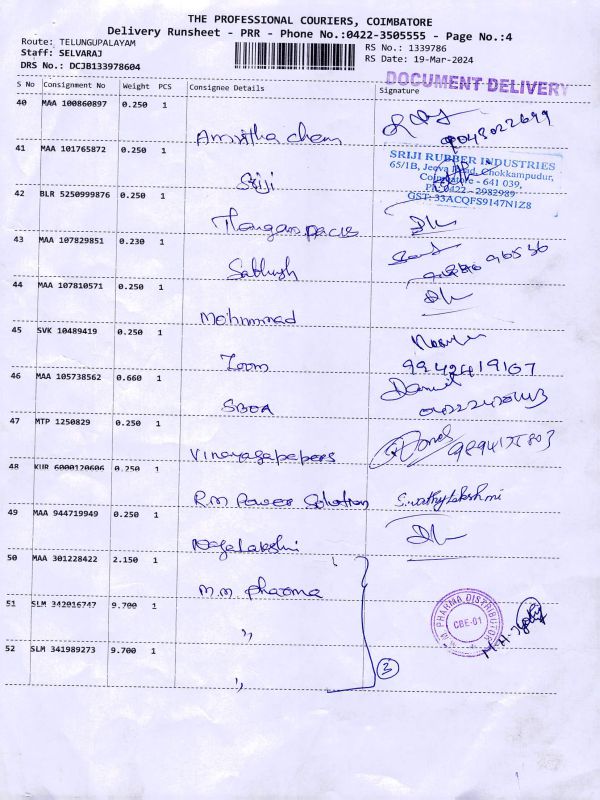 THE PROFESSIONAL COURIERS, COIMBATORE
Delivery Runsheet - PRR - Phone No.:0422-3505555 - Page No.:4
Route: TELUNGUPALAYAM
Staff: SELVARAJ
DRS No.: DCJB133978604
RS No.: 1339786
RS Date: 19-Mar-2024
DOCUMENT DELIVERY
S No Consignment No Weight PCS Consignee Details Signature
40 MAA 100860897 0.250 1
Amirtha chem
41 MAA 101765872 0.250 1
Sriji
SRIJI RUBBER INDUSTRIES
65/1B, Jeeva Road, Chokkampudur,
Coimbatore - 641 039,
Ph:0422 - 2982989
GST: 33ACQFS9147N1Z8
42 BLR 5250999876 0.250 1
43 MAA 107829851 0.230 1
44 MAA 107810571 0.250 1
Mohammad
45 SVK 10489419 0.250 1
Zoom
9942419107
46 MAA 105738562 0.660 1
SBOA
Daniel
47 MTP 1250829 0.250 1
Vinayagapepers
48 KUR 6000120606 0.250 1
R.M Power Solution Swathylakshmi
49 MAA 944719949 0.250 1
Nagalakshmi
50 MAA 301228422 2.150 1
M.M pharma
51 SLM 342016747 9.700 1
,,
M PHARMA DISTRIBUTOR
CBE-01
52 SLM 341989273 9.700 1
,,
3